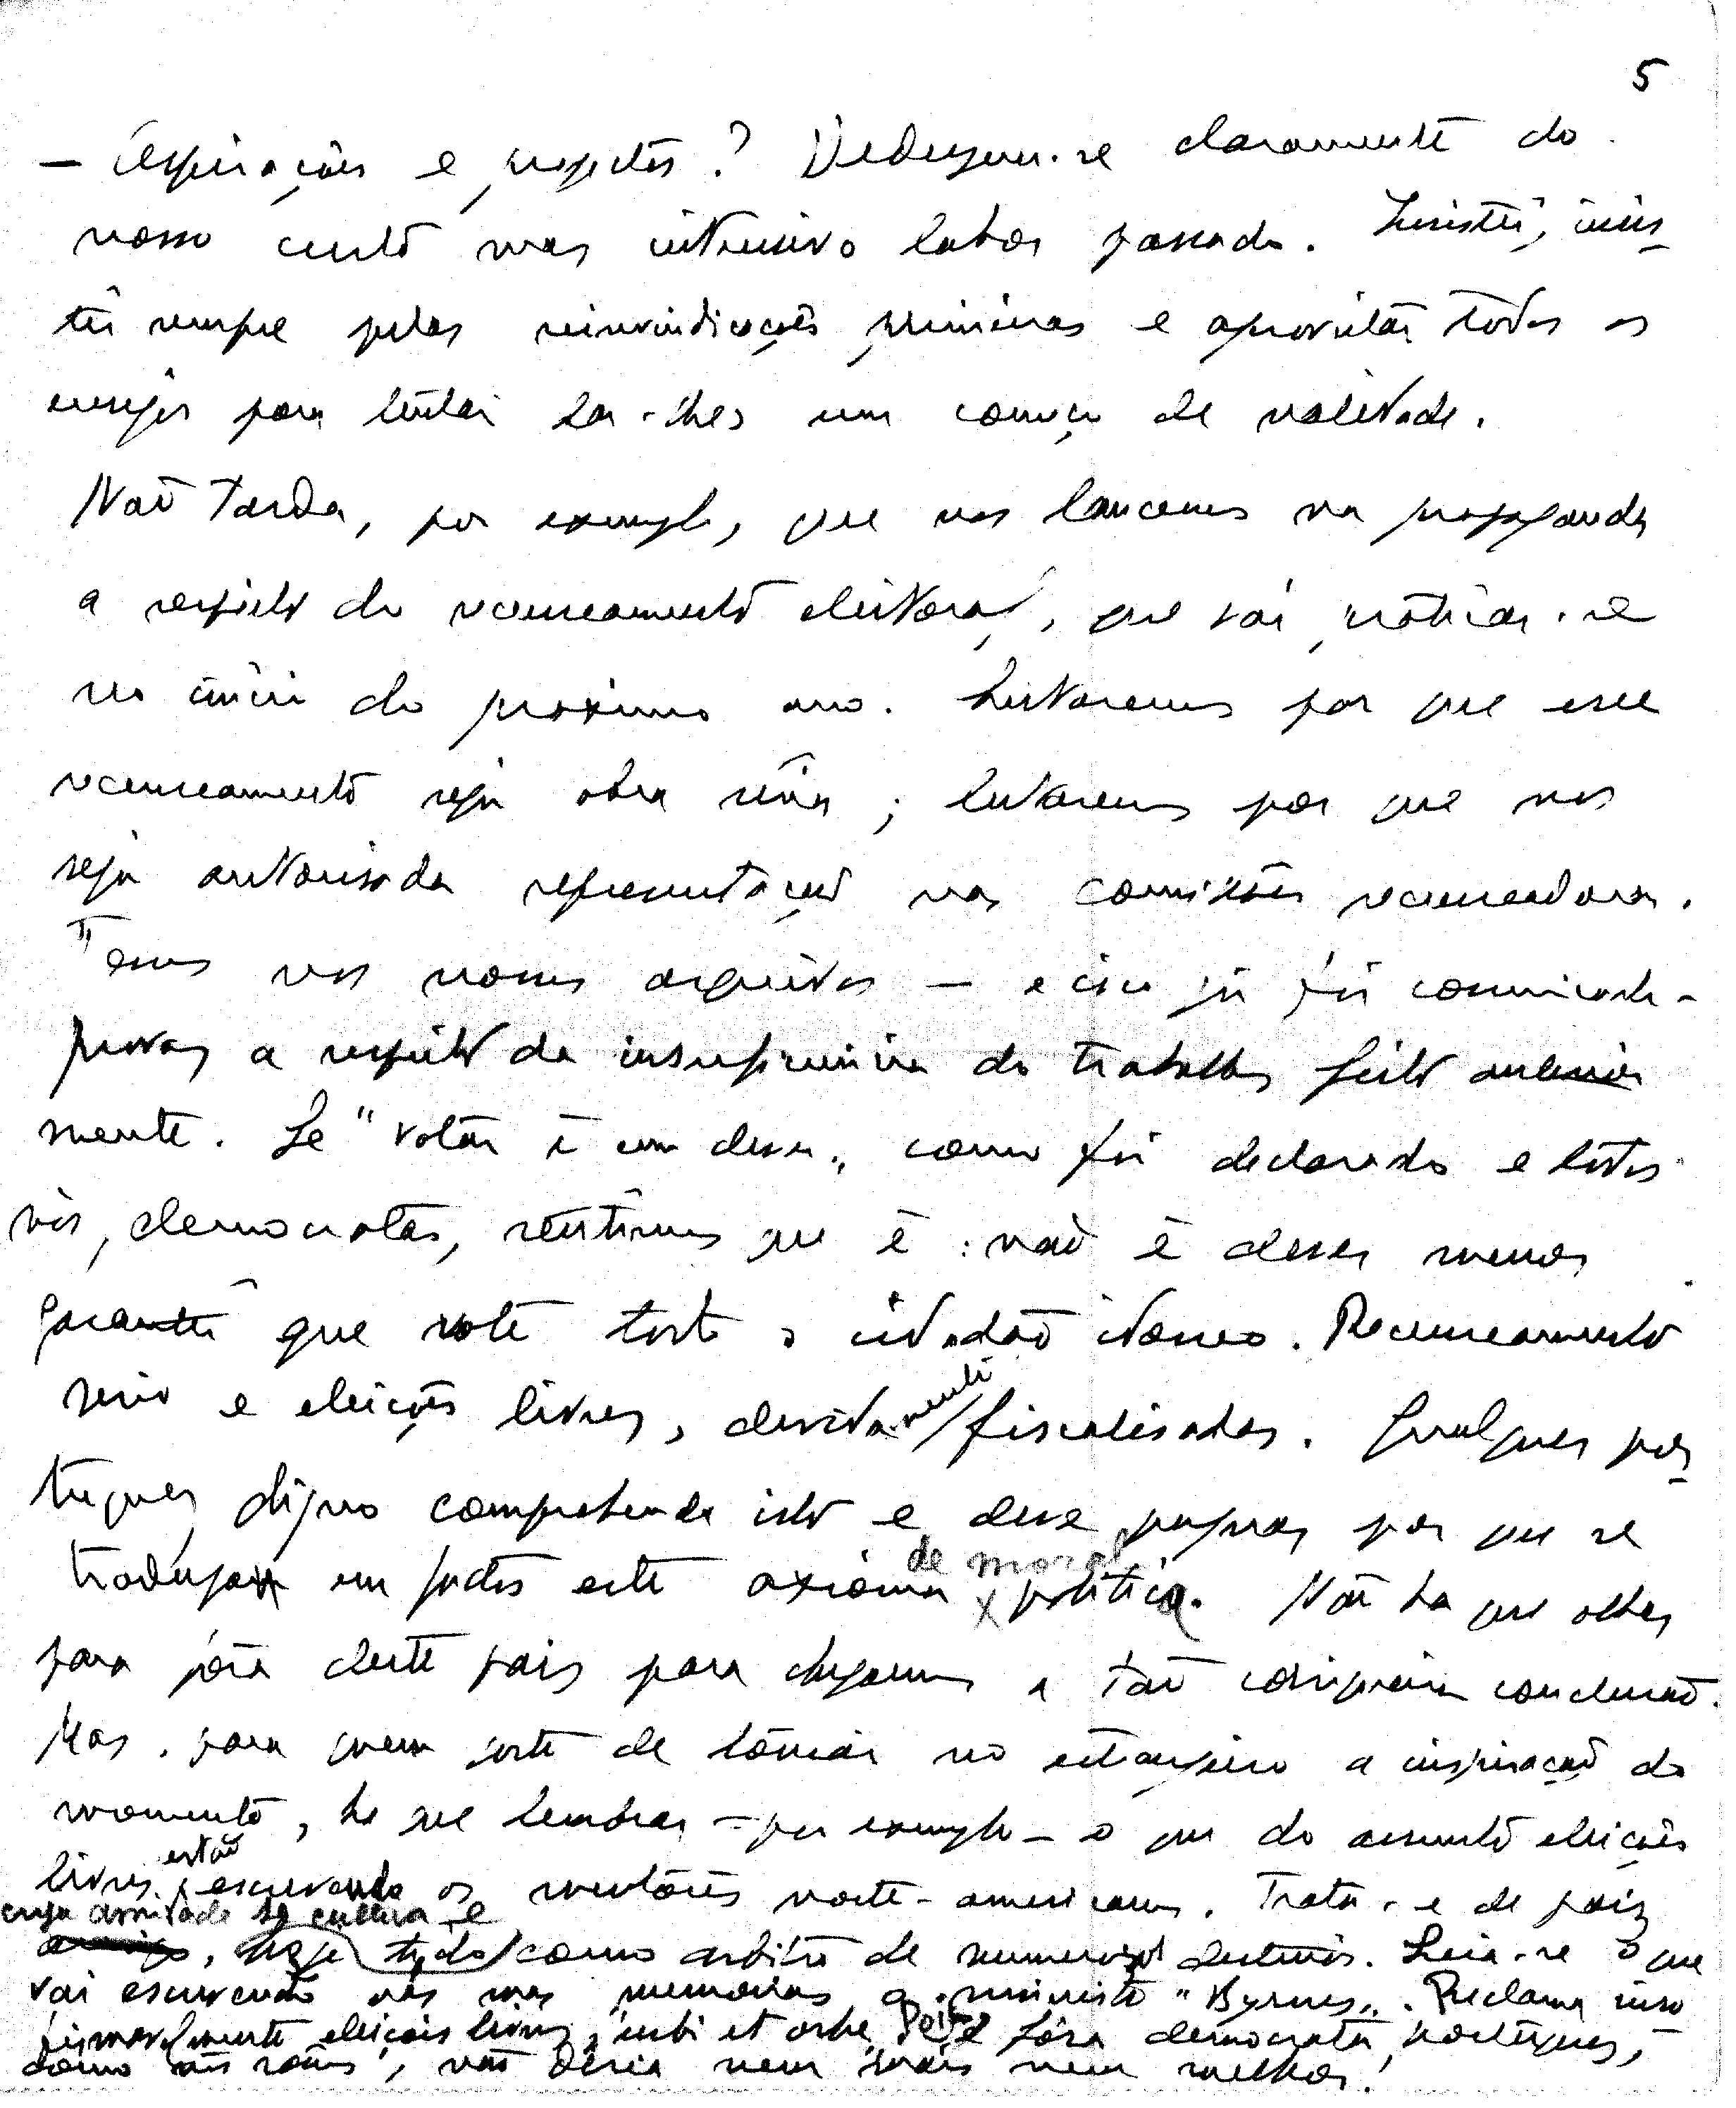 5
— Aspirações e projectos? Deduzem-se claramente do
nosso curto mas intensivo labor passado. Insistir, insis-
tir sempre pelas reinvindicações primeiras e aproveitar todos os
ensejos para tentar dar-lhes um começo de realidade.
Não tarda, por exemplo, que nos lancemos na propaganda
a respeito do recenseamento eleitoral, que vai praticar-se
no início do proximo ano. Lutaremos por que esse
recenseamento seja obra séria; lutaremos por que nos
seja autorisada representação nas comissões recenseadoras.
Temos nos nossos arquivos — e isso já foi comunicado —
provas a respeito da insuficiencia do trabalho feito anterior
mente. Se "votar é um dever", como foi declarado e todos
nós, democratas, sentimos que é: não é dever menor
garantir que vote todo o cidadão idoneo. Recenseamento
serio e eleições livres, devidamente fiscalisadas. Qualquer por-
tuguez digno compreende isto e deve pugnar por que se
traduza em factos este axioma de moral politica. Não ha que olhar
para fóra deste pais para chegarmos a tão comesinha conclusão.
Mas, para quem goste de tomar no estrangeiro a inspiração do
momento, ha que lembrar — por exemplo — o que do assunto eleições
livres estão escrevendo os mentores norte-americanos. Trata-se de paiz
cuja amizade se cultiva e hoje tido como arbitro de numerosos destinos. Leia-se o que
vai escrevendo nas suas memorias o ministro "Byrnes". Reclama isso
firmemente eleições livres, urbi et orbe. Pois se fôra democrata portuguez,
como nós somos, não diria nem mais nem melhor!